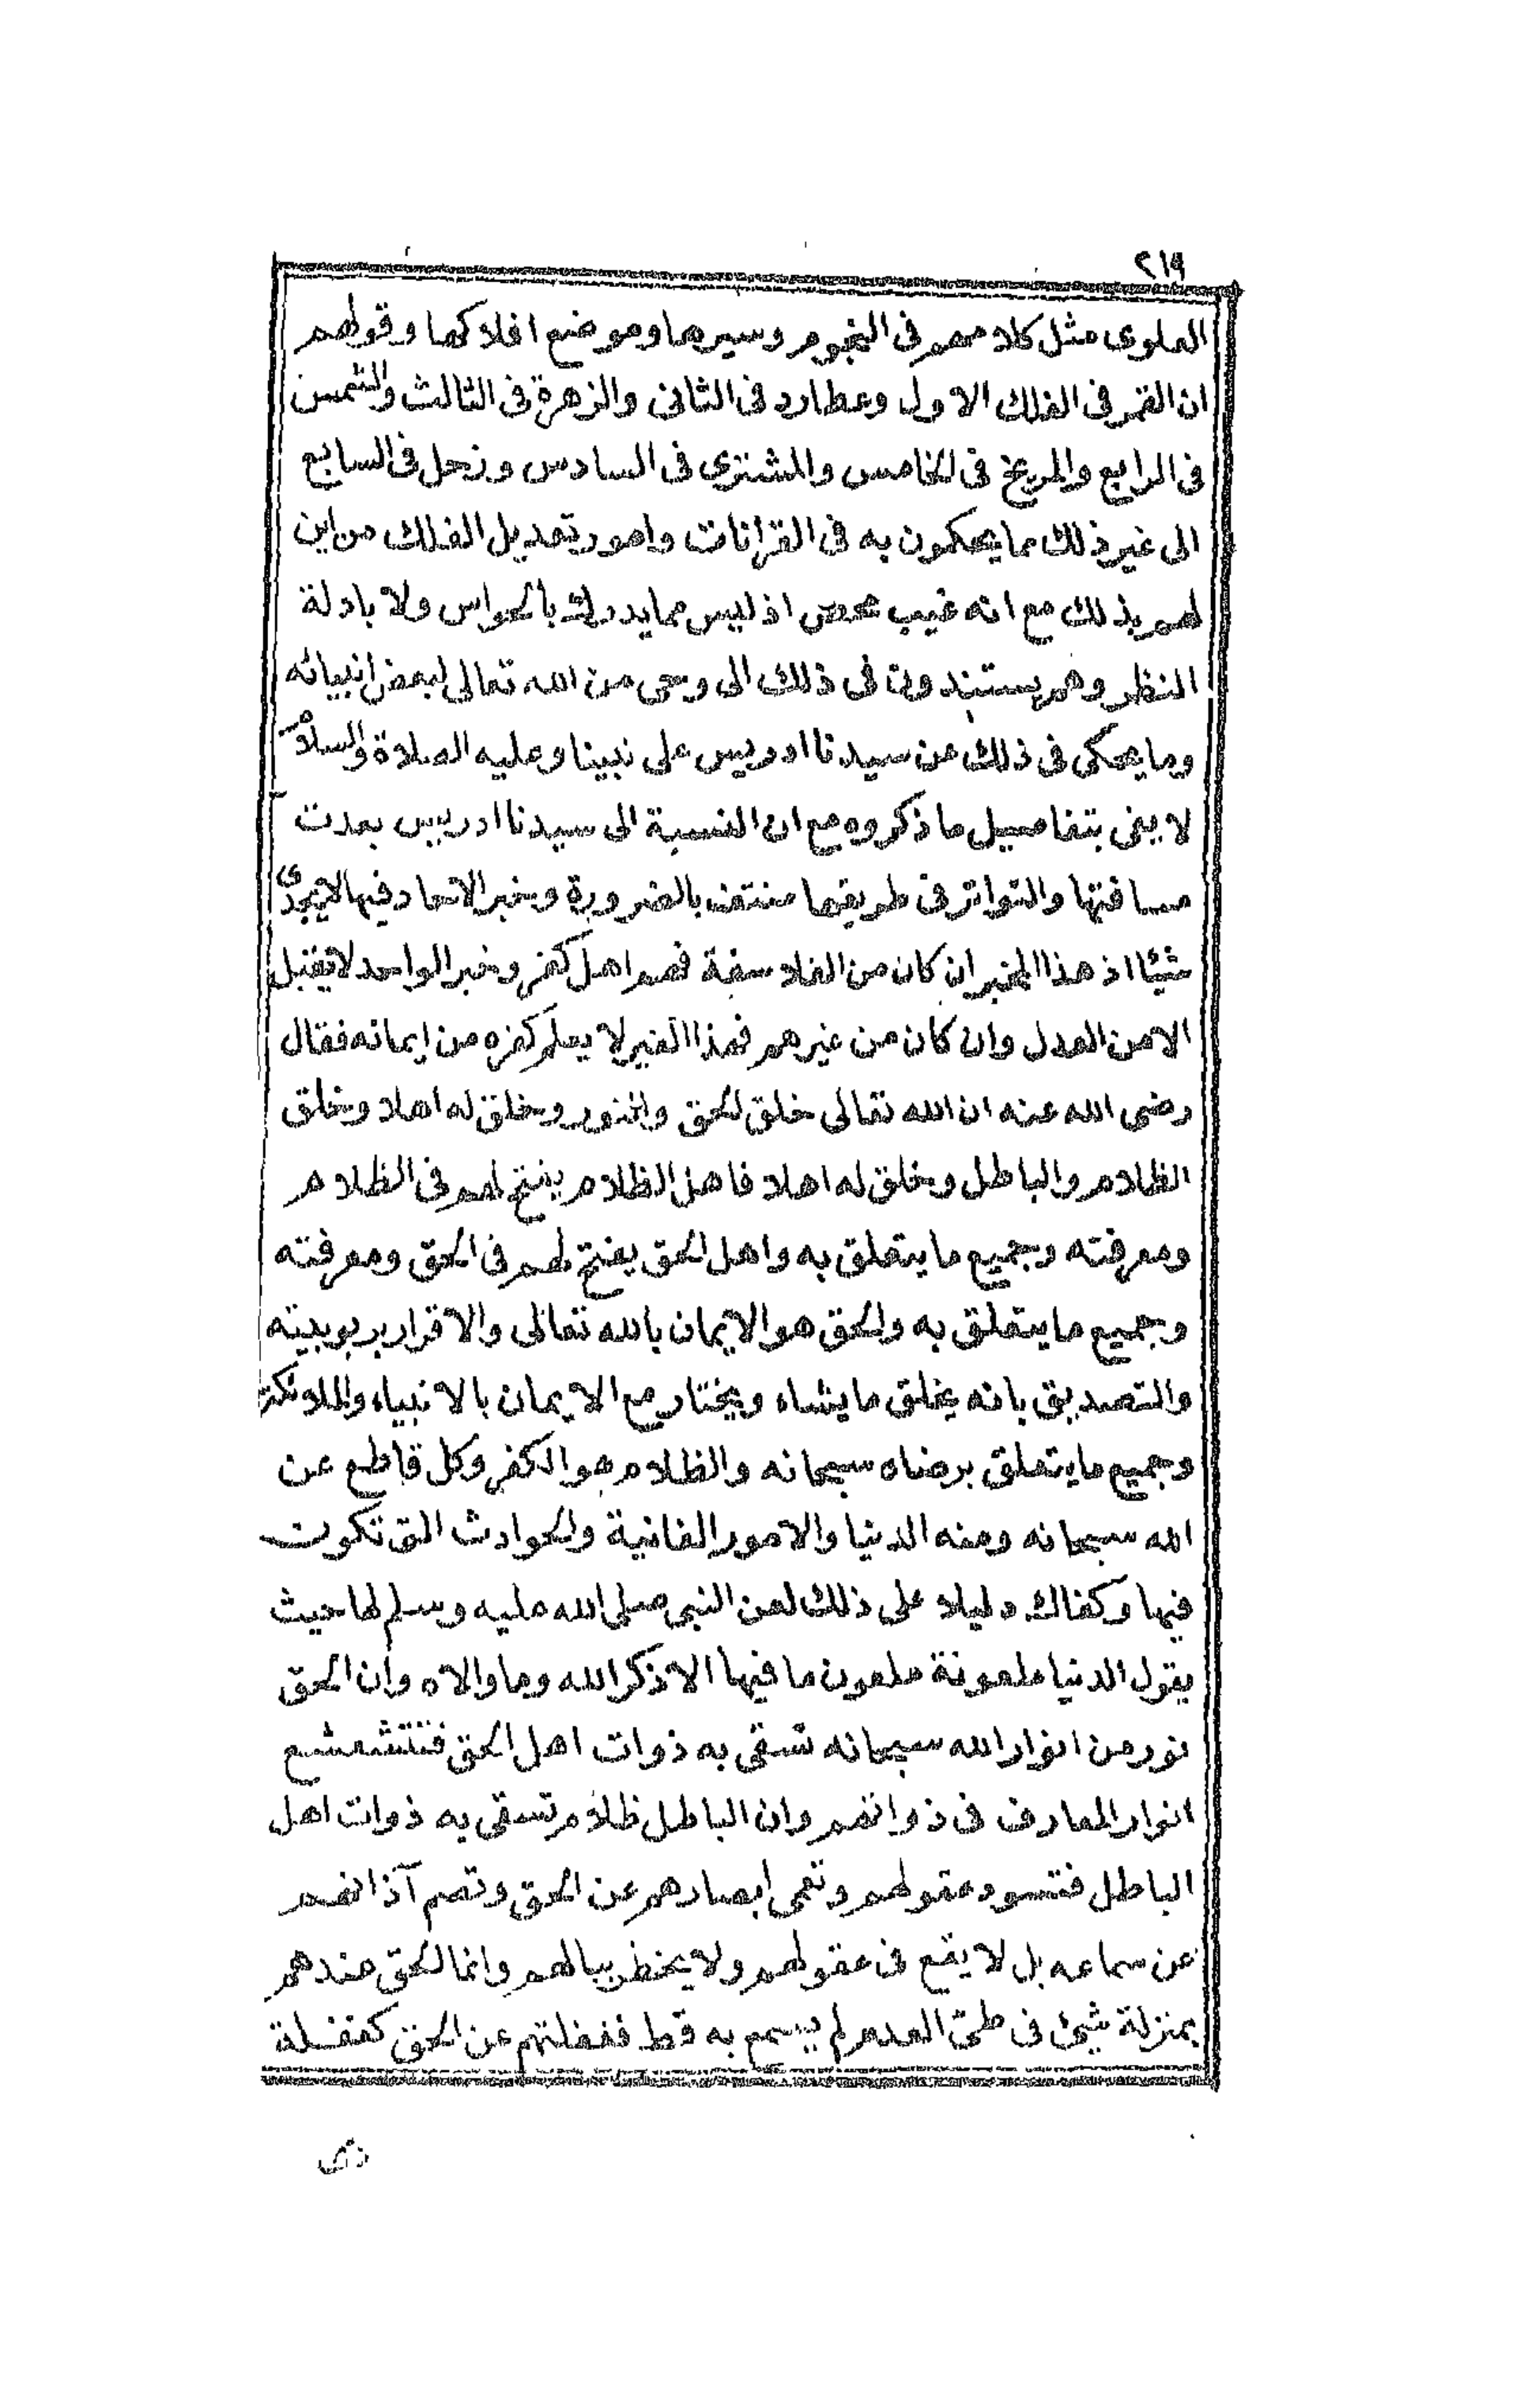 ٢١٩
العلوى مثل كلامهم فى النجوم وسيرها وموضع افلاكها وقولهم
ان القمر فى الفلك الاول وعطارد فى الثانى والزهرة فى الثالث والشمس
فى الرابع والمريخ فى الخامس والمشترى فى السادس وزحل فى السابع
الى غير ذلك مما يحكمون به فى القرانات وامور تعديل الفلك من اين
لهم بذلك مع انه غيب محض اذ ليس مما يدرك بالحواس ولا بادلة
النظر وهم يستندون فى ذلك الى وحى من الله تعالى لبعض انبيائه
وما يحكى فى ذلك عن سيدنا ادريس على نبينا وعليه الصلاة والسلام
لا يفى بتفاصيل ما ذكروه مع ان النسبة الى سيدنا ادريس بعدت
مسافتها والتواتر فى طريقها منتف بالضرورة وخبر الاحاد فيها لا يجدى
شيئا اذ هذا المخبر ان كان من الفلاسفة فهم اهل كفر وخبر الواحد لا يقبل
الا من العدل وان كان من غيرهم فهذا الغير لا يعلم كفره من ايمانه فقال
رضى الله عنه ان الله تعالى خلق الحق والنور وخلق له اهلا وخلق
الظلام والباطل وخلق له اهلا فاهل الظلام يفتح لهم فى الظلام
ومعرفته وجميع ما يتعلق به واهل الحق يفتح لهم فى الحق ومعرفته
وجميع ما يتعلق به والحق هو الايمان بالله تعالى والاقرار بربوبيته
والتصديق بانه يخلق ما يشاء ويختار مع الايمان بالانبياء والملائكة
وجميع ما يتعلق برضاه سبحانه والظلام هو الكفر وكل قاطع عن
الله سبحانه ومنه الدنيا والامور الفانية والحوادث التى تكون
فيها وكفاك دليلا على ذلك لعن النبى صلى الله عليه وسلم لها حيث
يقول الدنيا ملعونة ملعون ما فيها الا ذكر الله وما والاه وان الحق
نور من انوار الله سبحانه تسقى به ذوات اهل الحق فتتشعشع
انوار المعارف فى ذواتهم وان الباطل ظلام تسقى به ذوات اهل
الباطل فتسود عقولهم وتعمى ابصارهم عن الحق وتصم آذانهم
عن سماعه بل لا يقع فى عقولهم ولا يخطر ببالهم وانما الحق عندهم
بمنزلة شئ فى طىّ العدم لم يسمع به قط فغفلتهم عن الحق كغفلة